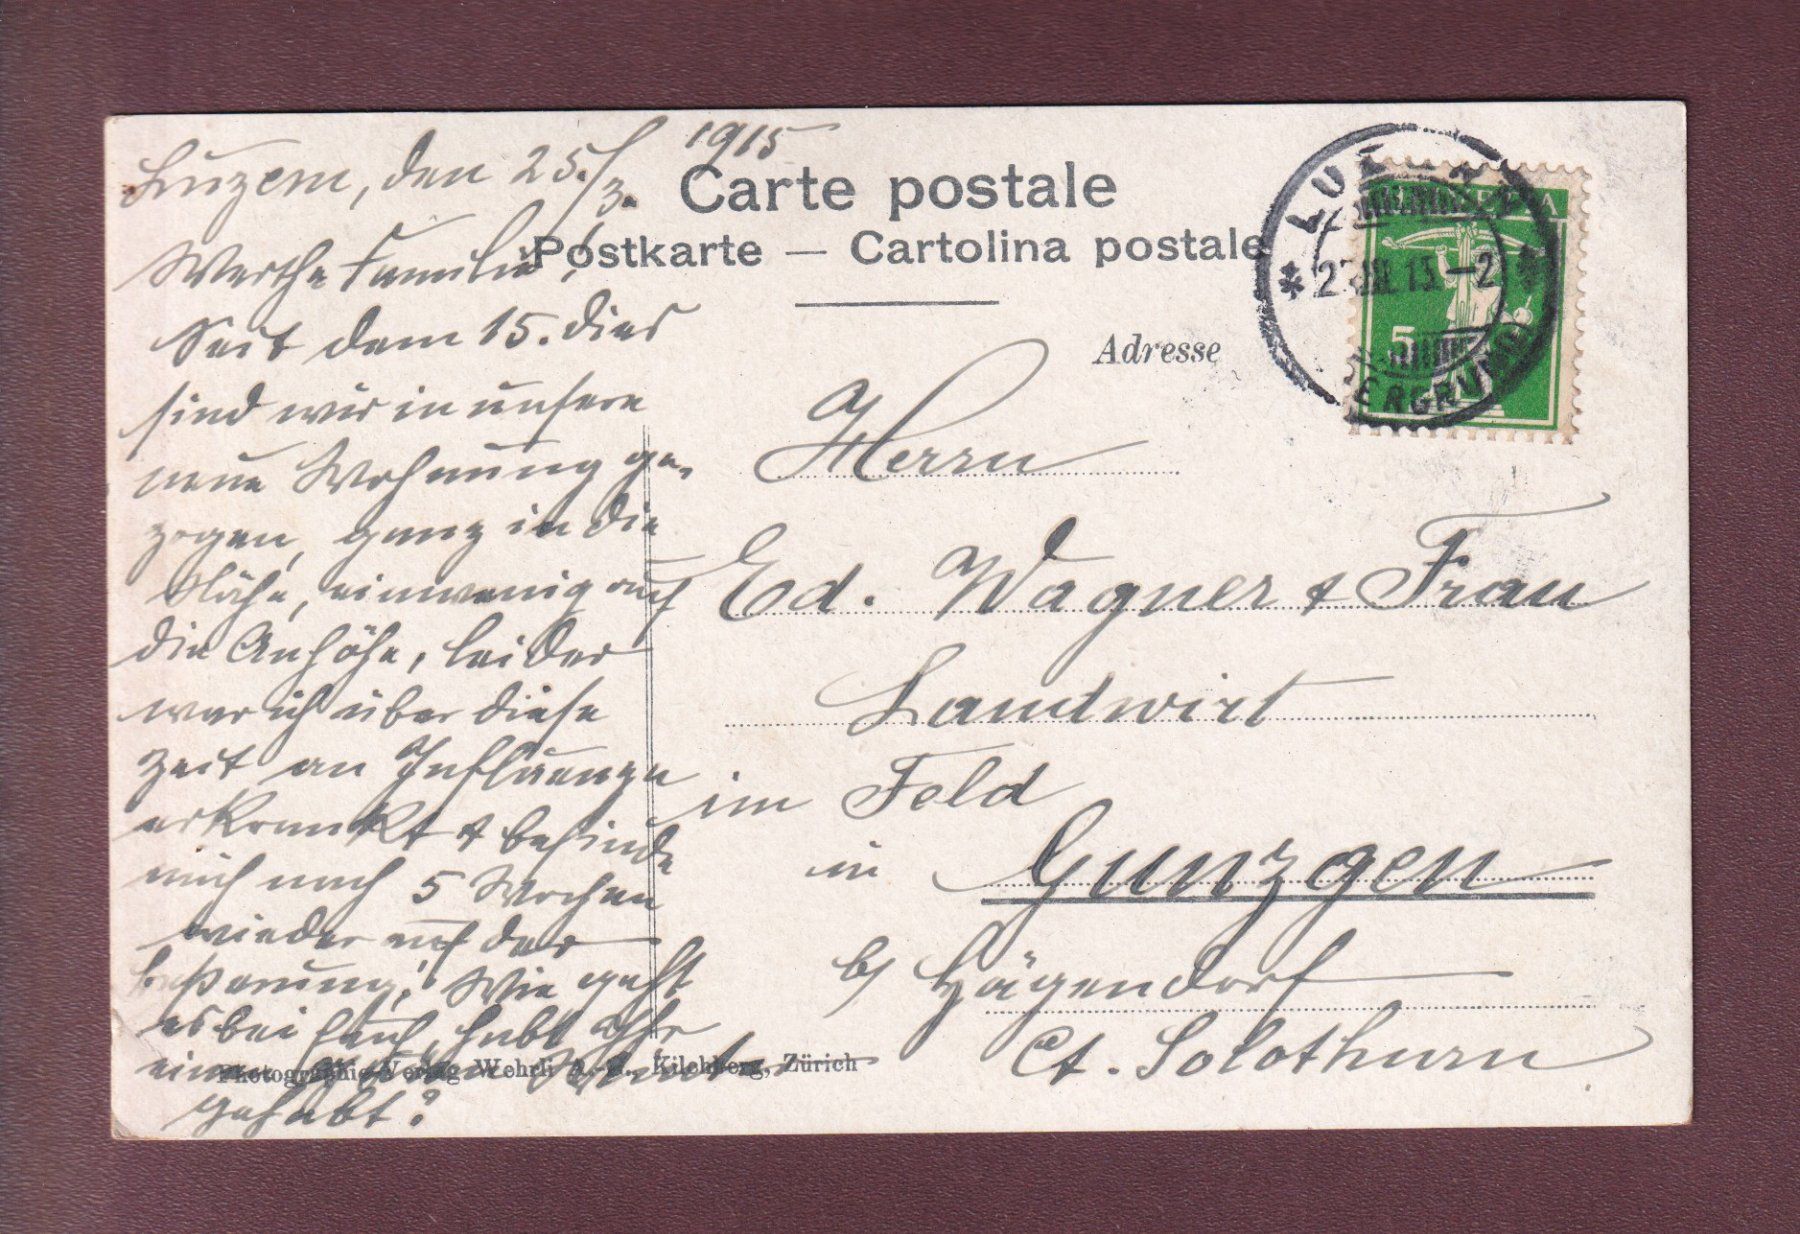 Luzern, den 25./3. 1915
Werthe Familie!
Seit dem 15. dies
sind wir in unsere
neue Wohnung ge-
zogen, ganz in die
Nähe, ein wenig auf
die Anhöhe, leider
war ich über diese
Zeit an Influenza
erkrankt & befinde
mich nach 5 Wochen
wieder auf der
Besserung! Wie geht
es bei Euch, habt Ihr
gehabt?
Carte postale
Postkarte — Cartolina postale
Adresse
Herrn
Ed. Wagner & Frau
Landwirt
im Feld
in Gunzgen
b/ Hägendorf
Ct. Solothurn
Photographie-Verlag Wehrli A.-G., Kilchberg, Zürich
LUZERN
HELVETIA
5
OBERGRUND